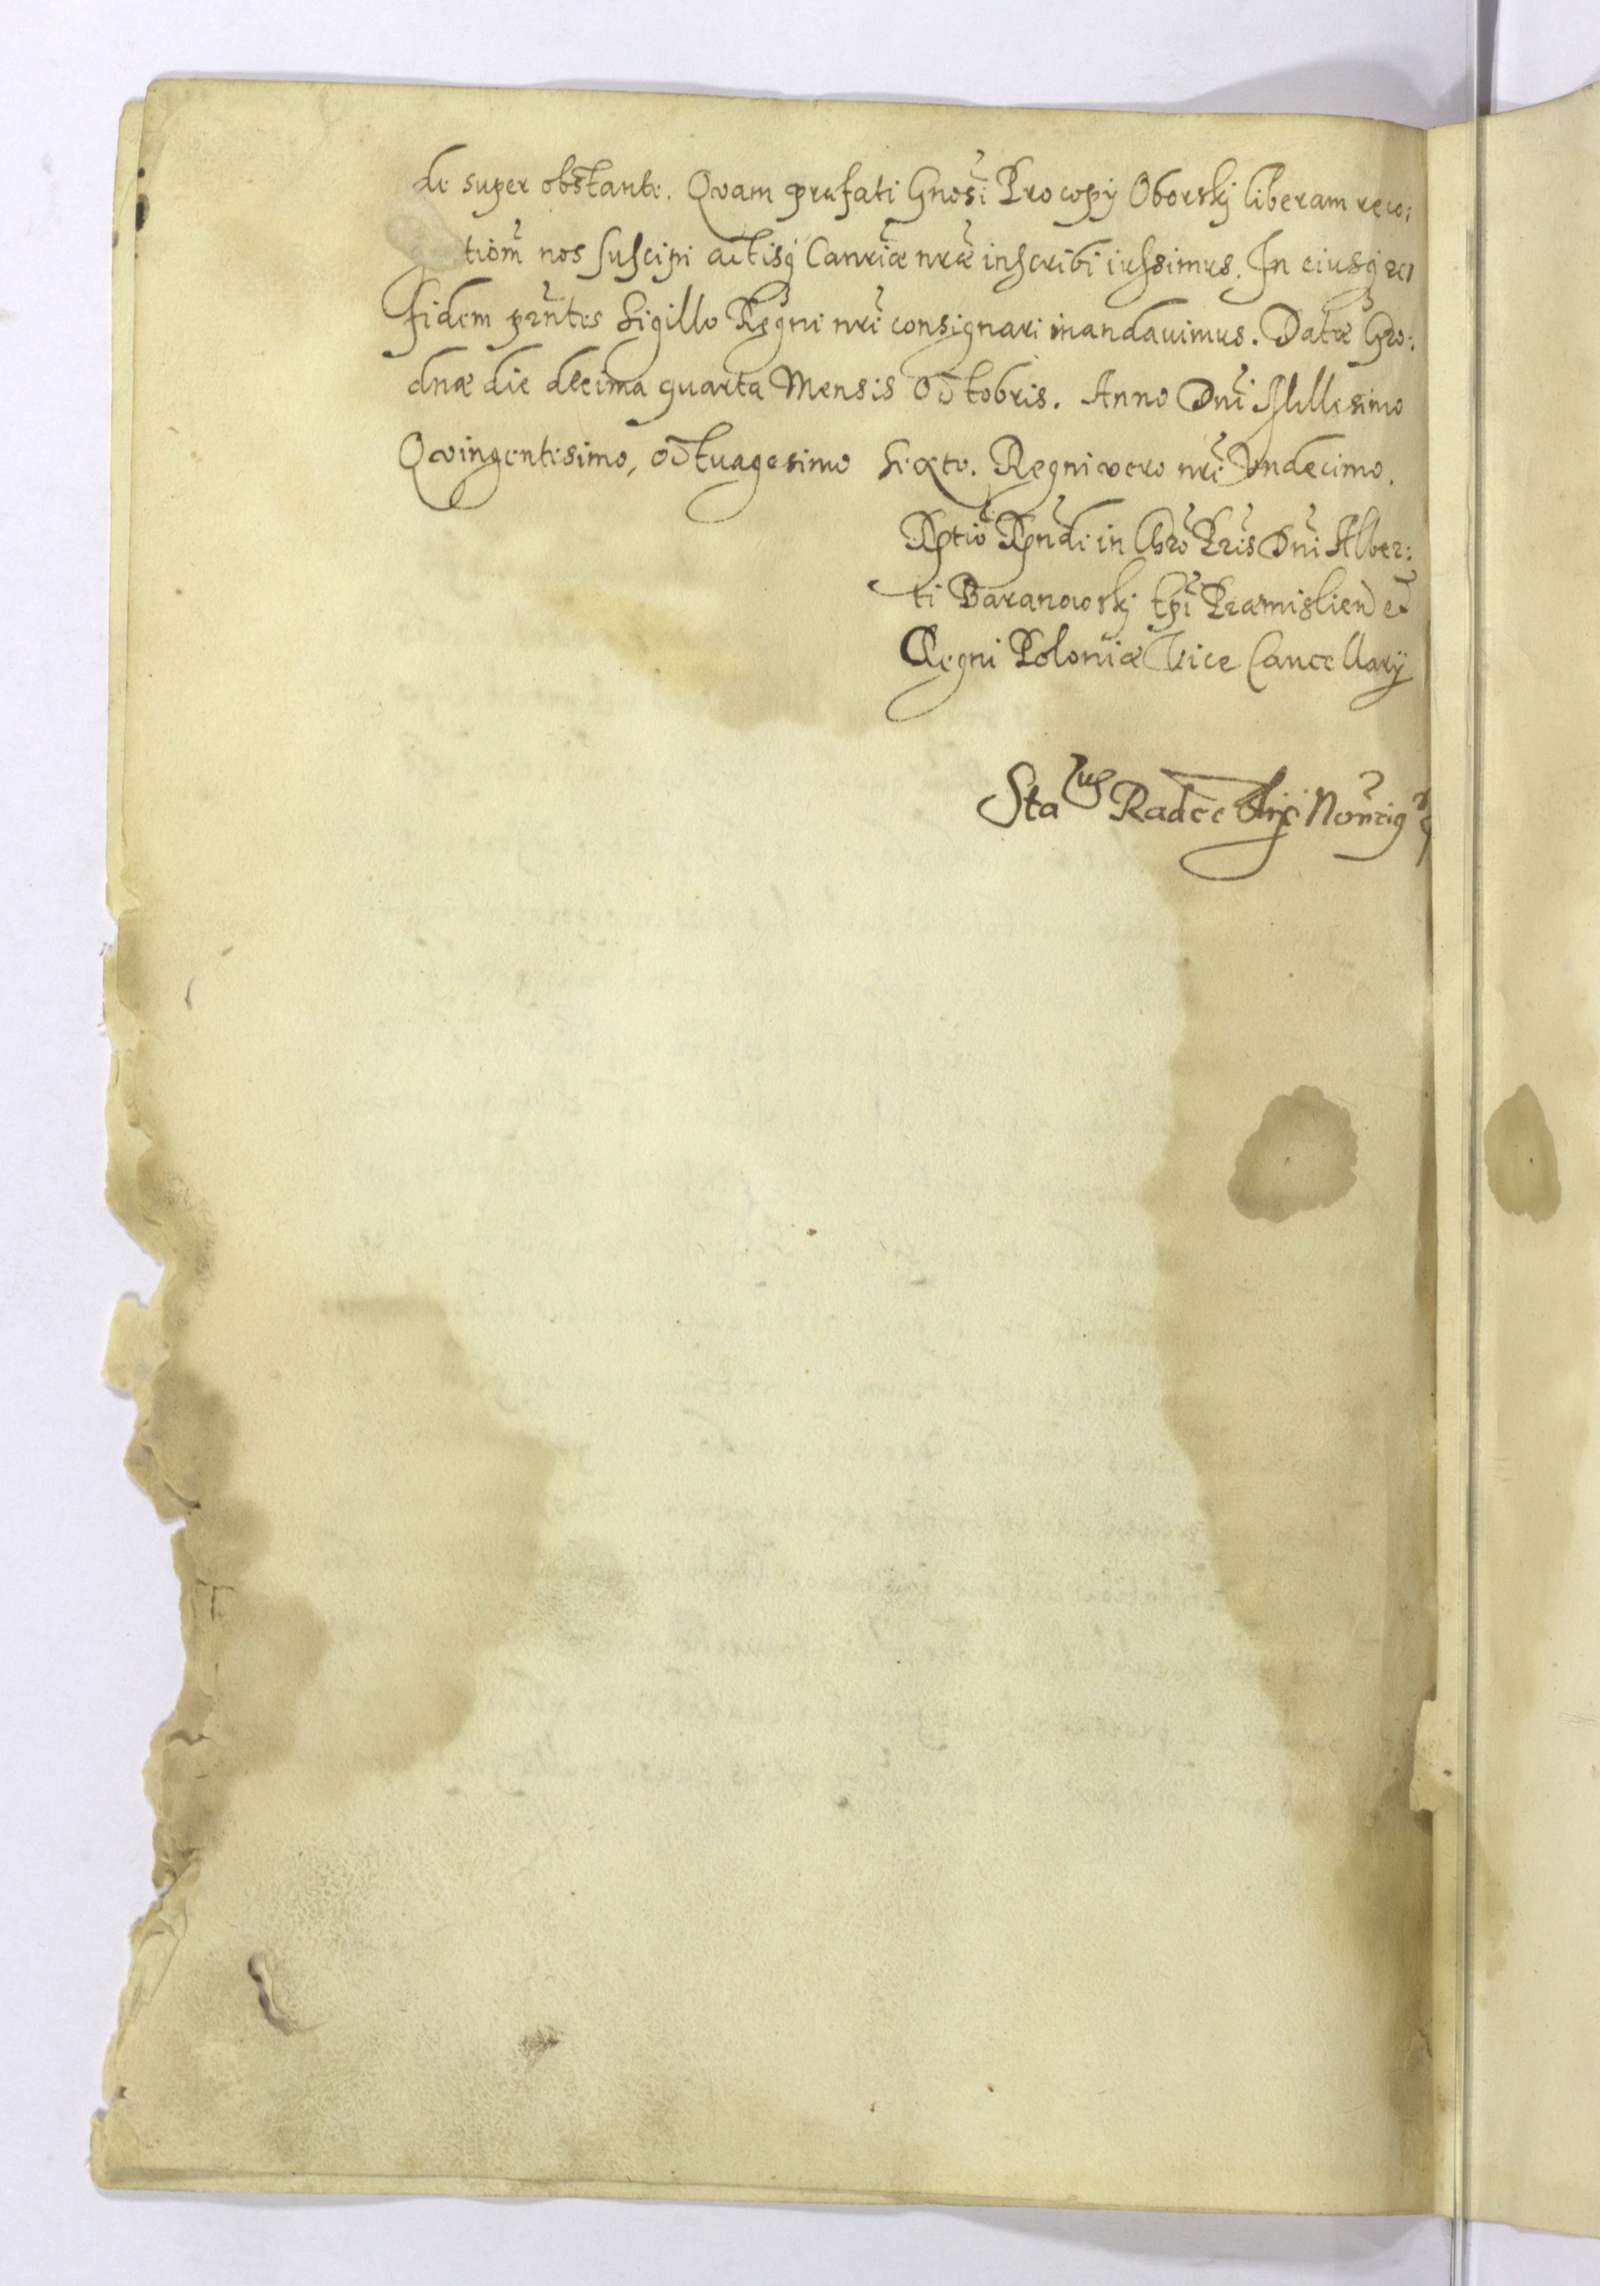 de super obstante. Quam præfati Gnosi Procopÿ Oborskj liberam reco:
tiom nos suscipi actisq Canriæ nræ inscribi iussimus. In eiusq rei
fidem pzntes Sigillo Regni nri consignari mandauimus. Datæ Gro:
dnæ die decima quarta Mensis Octobris. Anno Dni Millesimo
Quingentesimo, octuagesimo Sexto. Regni vero nri Vndecimo.
Rptio Rpndi in Chro Pris Dni Alber:
ti Baranowskj Epi Præmislien et
Regni Poloniæ Vice Cancellarÿ
Sta lus